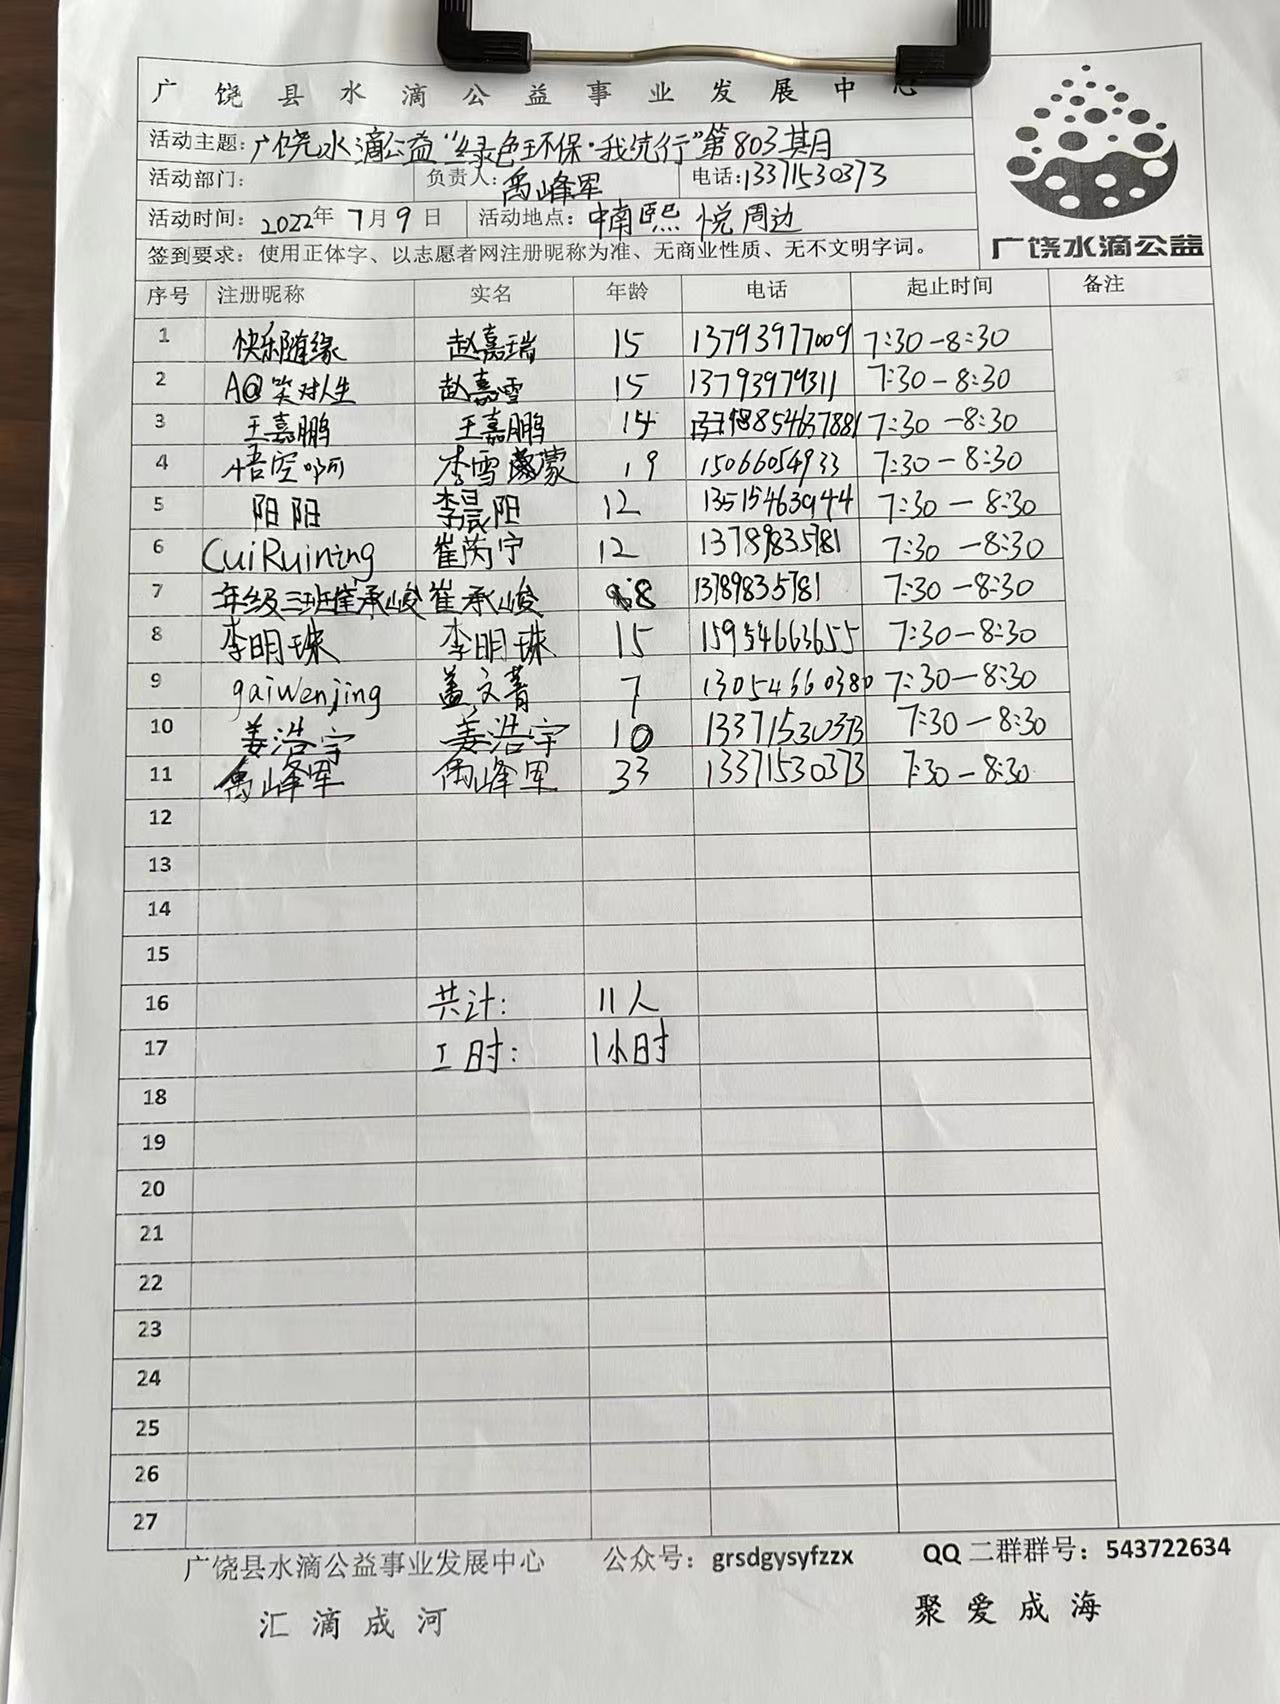 广饶县水滴公益事业发展中心
活动主题：广饶水滴公益“绿色环保·我先行”第803期月
活动部门： 负责人：禹峰军 电话：13371530373
活动时间：2022年7月9日 活动地点：中南熙悦周边
签到要求：使用正体字、以志愿者网注册昵称为准、无商业性质、无不文明字词。
广饶水滴公益
序号 注册昵称 实名 年龄 电话 起止时间 备注
1 快乐随缘 赵嘉瑞 15 13793977009 7:30-8:30
2 A@笑对人生 赵嘉雪 15 13793979311 7:30-8:30
3 王嘉鹏 王嘉鹏 14 7:30-8:30
4 悟空啊 李雪蒙 19 15066054933 7:30-8:30
5 阳阳 李晨阳 12 13515463944 7:30-8:30
6 CuiRuining 崔芮宁 12 13789835781 7:30-8:30
7 年级三班崔承峻 崔承峻 8 13789835781 7:30-8:30
8 李明珠 李明珠 15 15954663655 7:30-8:30
9 gaiwenjing 盖文菁 7 13054660380 7:30-8:30
10 姜浩宇 姜浩宇 10 13371530373 7:30-8:30
11 禹峰军 禹峰军 33 13371530373 7:30-8:30
12
13
14
15
16 共计： 11人
17 工时： 1小时
18
19
20
21
22
23
24
25
26
27
广饶县水滴公益事业发展中心 公众号：grsdgysyfzzx QQ二群群号：543722634
汇滴成河 聚爱成海